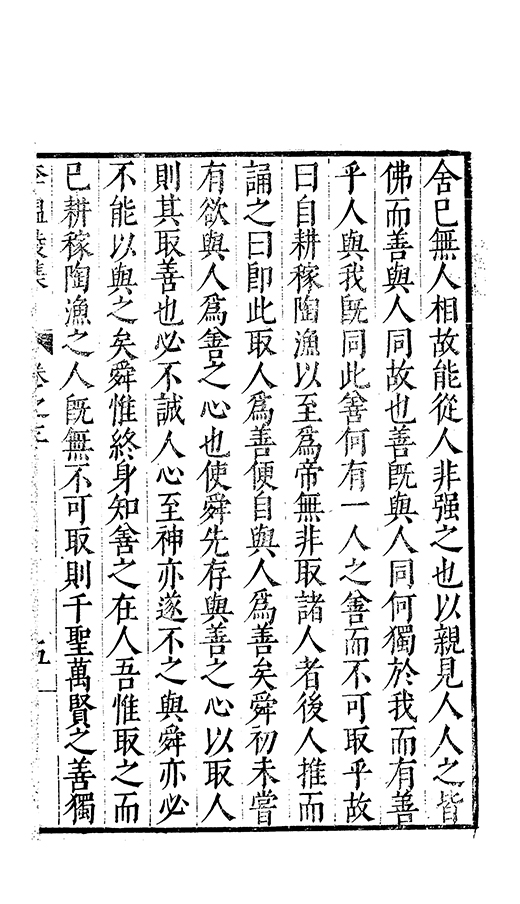 舍已無人相故能從人非强之也以親見人人之皆
佛而善與人同故也善旣與人同何獨於我而有善
乎人與我旣同此善何有一人之善而不可取乎故
曰自耕稼陶漁以至爲帝無非取諸人者後人推而
誦之曰卽此取人爲善便自與人爲善矣舜初未嘗
有欲與人爲善之心也使舜先存與善之心以取人
則其取善也必不誠人心至神亦遂不之與舜亦必
不能以與之矣舜惟終身知善之在人吾惟取之而
已耕稼陶漁之人旣無不可取則千聖萬賢之善獨
李溫陵集 卷之三 五